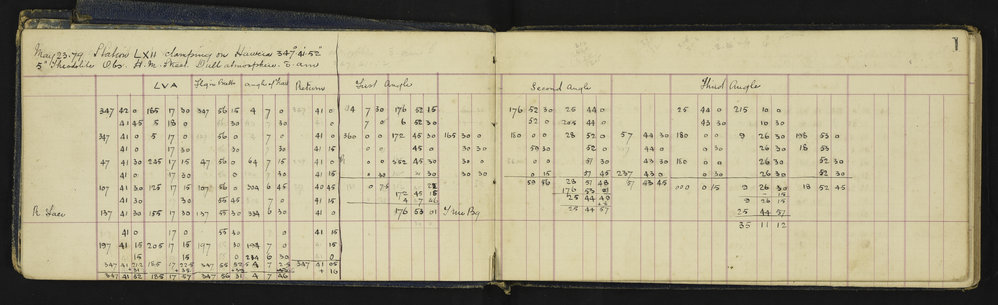 May 23. 79 Station LXII clamping on Hawera 347° 41' 52"
5" Theodolite Obs. H. M. Skeet. Dull atmosphere. 3 am
LVA angle Return First Angle Second Angle Third Angle
347 42 0 185 17 30 347 56 15 4 7 0 41 0 4 7 30 176 52 15 176 52 30 25 44 0 25 44 0 215 10 0
41 45 5 18 0 30 30 7 0 6 52 30 52 0 205 44 0 43 30 10 30
347 41 0 5 17 0 56 0 7 0 41 0 360 0 0 172 45 30 165 30 0 180 0 0 28 52 0 57 44 30 180 0 0 9 26 30 198 53 0
41 0 17 30 30 7 30 41 15 0 0 45 0 30 30 59 30 52 0 44 30 0 30 26 30 18 53
47 41 30 235 17 15 47 56 0 64 7 15 41 0 0 0 352 45 30 30 0 0 0 57 30 43 30 180 0 0 26 30 52 30
41 0 17 30 56 0 7 0 41 15 0 30 45 30 30 30 0 15 57 45 237 43 0 0 30 26 30 52 30
59 56 28 57 48 57 43 45
107 41 30 125 17 15 107 56 0 304 6 45 40 45 0 7.5 176 53 01 0 15 9 26 30 18 52 45
41 30 30 55 45 7 0 41 0 172 45 15 25 44 49 15
R Face 137 41 30 155 17 30 137 55 30 334 6 30 41 15 176 53 01 True Bg 25 44 57 25 44 57
35 11 12
41 0 17 0 55 30 0 41 15
197 41 15 205 17 15 197 30 194 7 0 41 0
15 15 0 234 6 30 0
347 41 21.2 185 17 22.5 347 55 52.5 4 7 2.5 347 41 05
+ 10
347 41 52 185 17 57 347 56 31 4 7 46